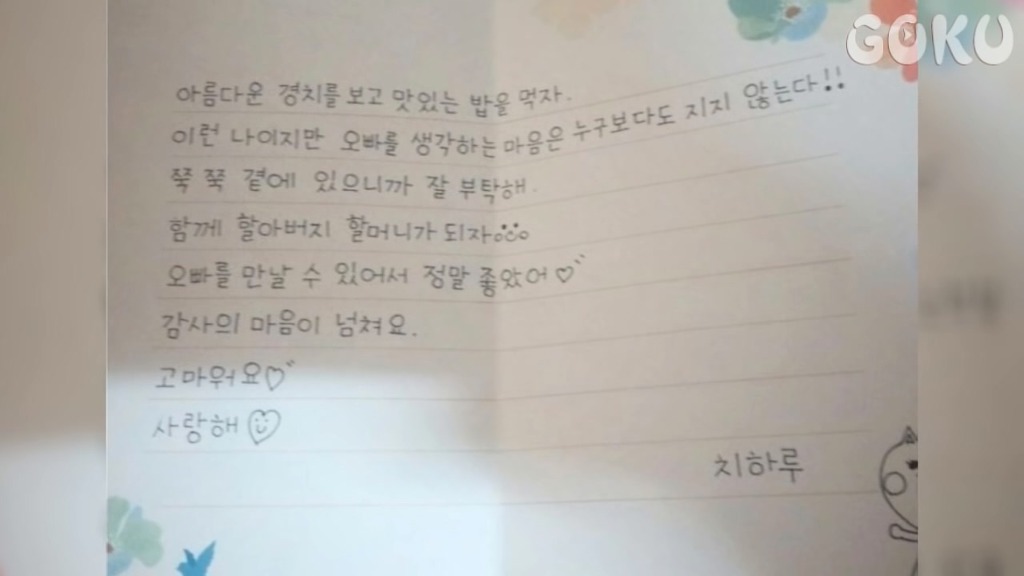 GOKU
아름다운 경치를 보고 맛있는 밥을 먹자.
이런 나이지만 오빠를 생각하는 마음은 누구보다도 지지 않는다!!
쭉 쭉 곁에 있으니까 잘 부탁해.
함께 할아버지 할머니가 되자
오빠를 만날 수 있어서 정말 좋았어♡
감사의 마음이 넘쳐요.
고마워요♡
사랑해♡
치하루